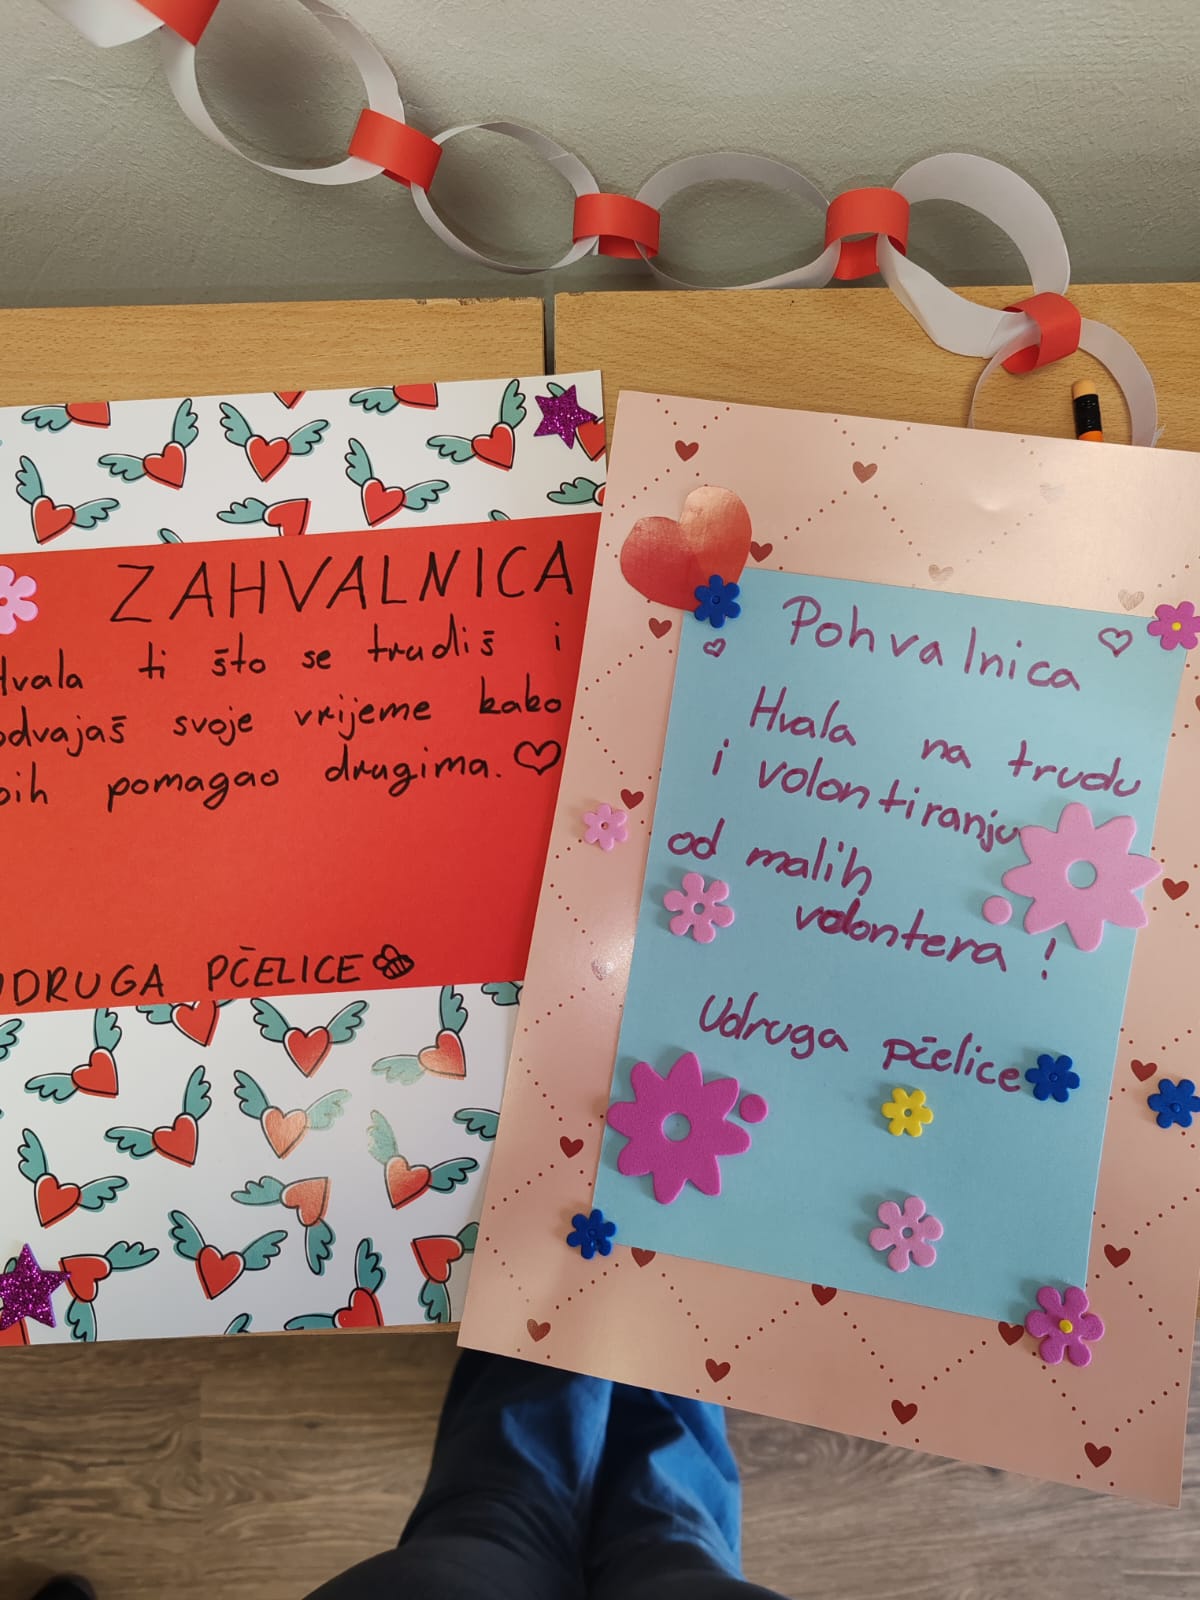 ZAHVALNICA
Hvala ti što se trudiš i
odvajaš svoje vrijeme kako
bih pomagao drugima.
UDRUGA PČELICE
Pohvalnica
Hvala na trudu
i volontiranju
od malih
volontera !
Udruga pčelice